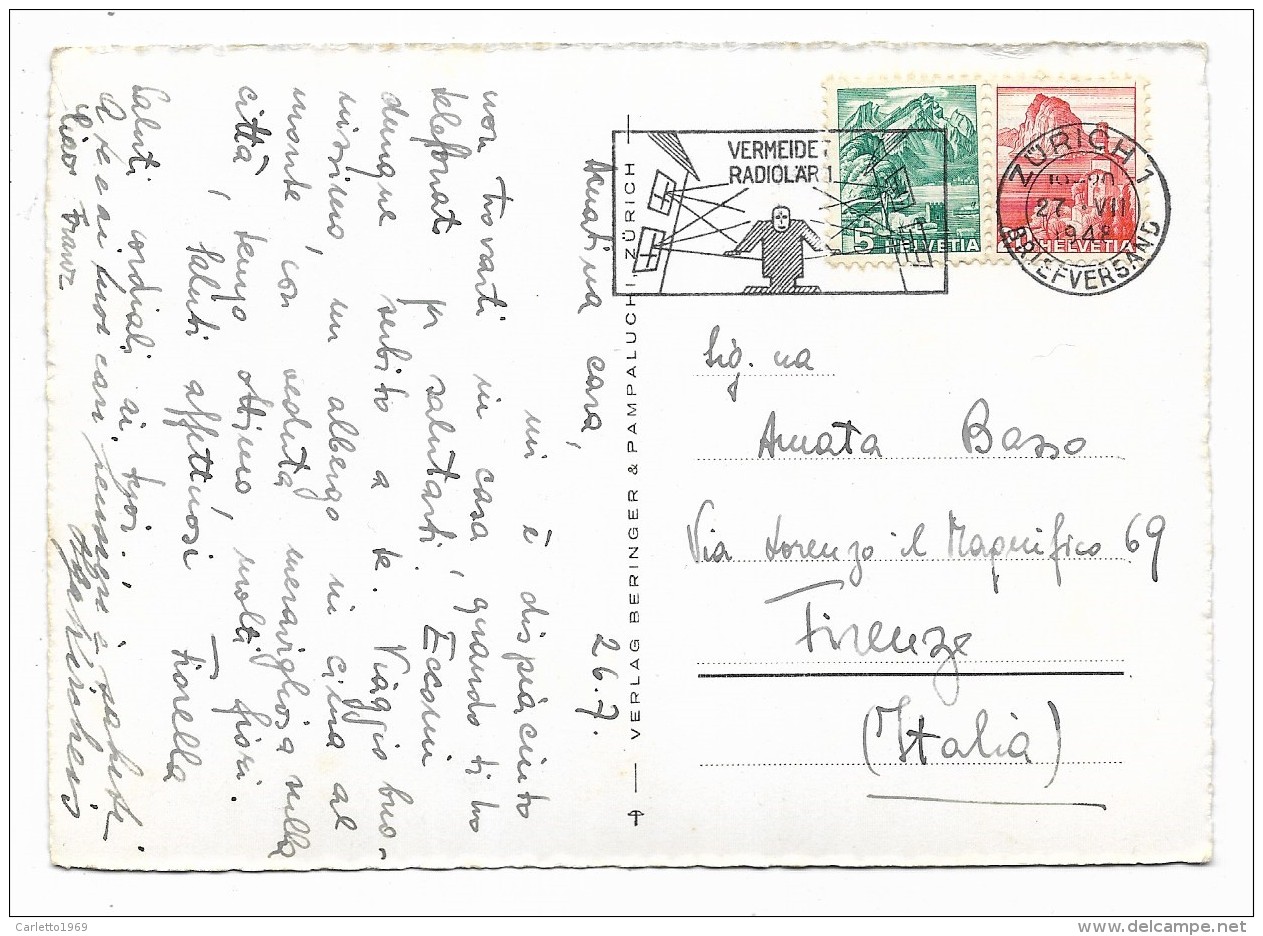 Amatina cara,
26.7.
mi è dispiaciuto
non trovarti in casa, quando ti ho
telefonato per salutarti. Eccomi
dunque subito a te. Viaggio buo-
nissimo, un albergo in cima al
monte, con veduta meravigliosa sulla
città, tempo ottimo, molti fiori.
Saluti affettuosi Fiorella
Saluti cordiali ai
A te e ai tuoi cari pensieri e saluti
VERLAG BERINGER & PAMPALUCHI, ZÜRICH
VERMEIDET
RADIOLÄRM
5 HELVETIA
HELVETIA
ZÜRICH 1
27 VII
1948
BRIEFVERSAND
Sig.na
Amata Basso
Via Lorenzo il Magnifico 69
Firenze
(Italia)
Carletto1969
delcampe.net